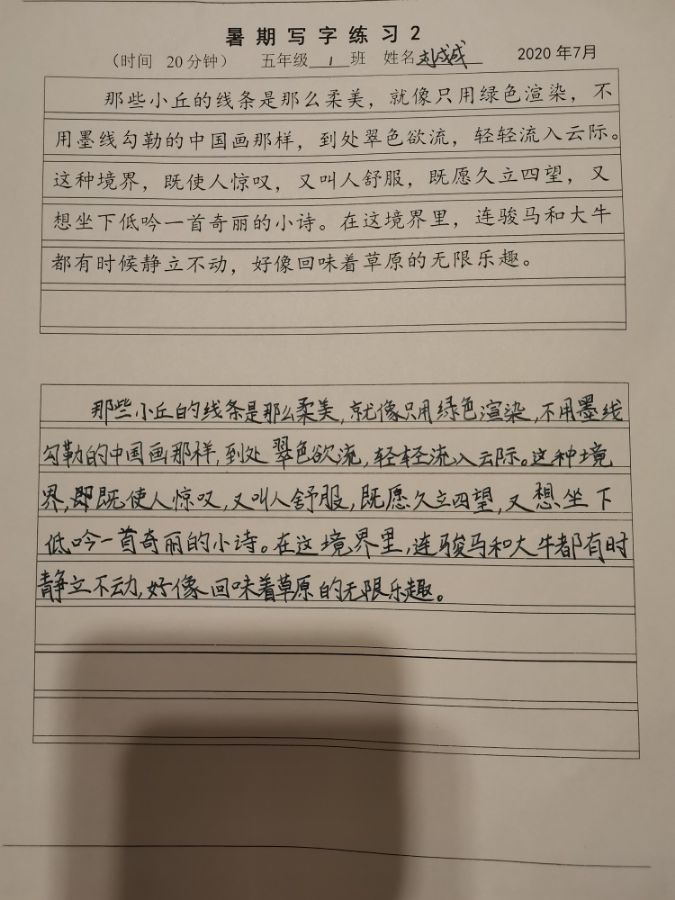 暑期写字练习2
（时间 20分钟） 五年级 1 班 姓名 刘成成 2020年7月
那些小丘的线条是那么柔美，就像只用绿色渲染，不
用墨线勾勒的中国画那样，到处翠色欲流，轻轻流入云际。
这种境界，既使人惊叹，又叫人舒服，既愿久立四望，又
想坐下低吟一首奇丽的小诗。在这境界里，连骏马和大牛
都有时候静立不动，好像回味着草原的无限乐趣。
那些小丘的线条是那么柔美,就像只用绿色渲染,不用墨线
勾勒的中国画那样,到处翠色欲流,轻轻流入云际。这种境
界,即既使人惊叹,又叫人舒服,既愿久立四望,又想坐下
低吟一首奇丽的小诗。在这境界里,连骏马和大牛都有时
静立不动,好像回味着草原的无限乐趣。